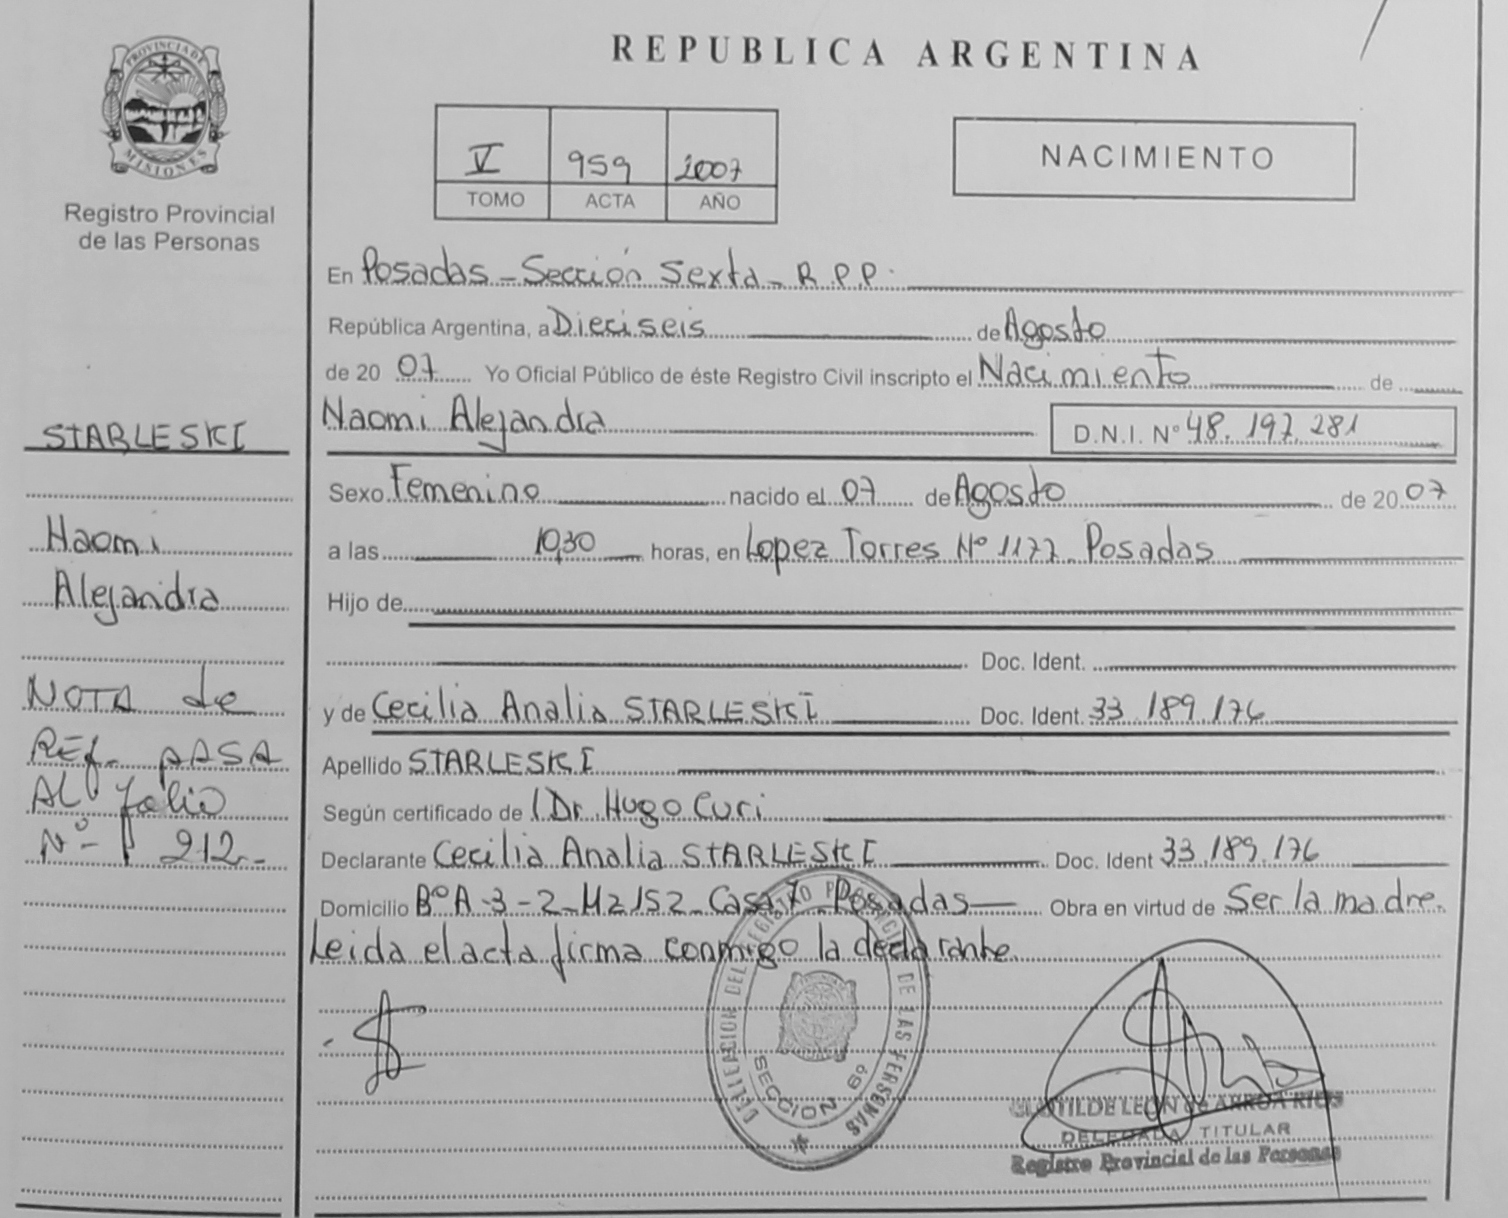 PROVINCIA DE
MISIONES
Registro Provincial
de las Personas
STARLESKI
Naomi
Alejandra
NOTA de
REF. PASA
AL folio
Nº- 212-
REPUBLICA ARGENTINA
V 959 2007
TOMO ACTA AÑO
NACIMIENTO
En Posadas - Sección Sexta - R.P.P.
República Argentina, a Dieciseis de Agosto
de 20 07 Yo Oficial Público de éste Registro Civil inscripto el Nacimiento de
Naomi Alejandra D.N.I. Nº 48.197.281
Sexo Femenino nacido el 07 de Agosto de 20 07
a las 10,30 horas, en Lopez Torres Nº 1177 Posadas
Hijo de
Doc. Ident.
y de Cecilia Analia STARLESKI Doc. Ident. 33.189.176
Apellido STARLESKI
Según certificado de Dr. Hugo Curi
Declarante Cecilia Analia STARLESKI Doc. Ident 33.189.176
Domicilio BºA-3-2-Mz 152 Casa 7 Posadas Obra en virtud de Ser la madre.
Leida el acta firma conmigo la declarante.
DELEGACION DEL REGISTRO PROVINCIAL DE LAS PERSONAS
SECCION 6º
CLOTILDE LEON de ARRUA RIOS
DELEGADA TITULAR
Registro Provincial de las Personas